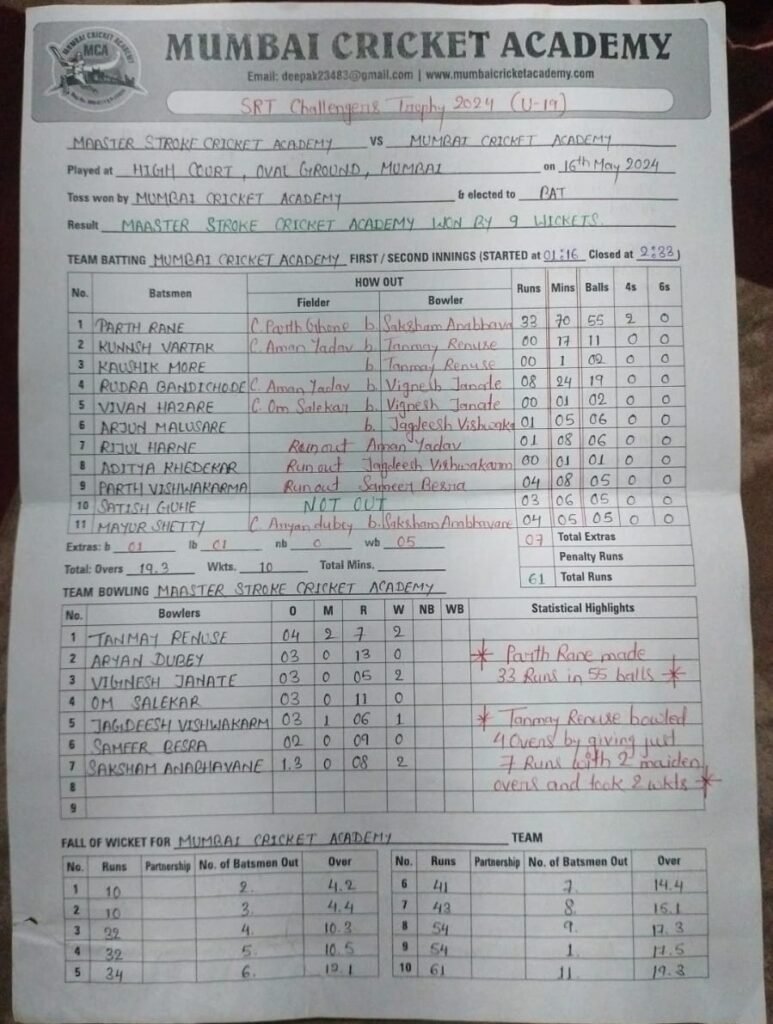 MUMBAI CRICKET ACADEMY
MCA
MUMBAI CRICKET ACADEMY
Email: deepak23483@gmail.com | www.mumbaicricketacademy.com
SRT Challengers Trophy 2024 (U-19)
MAASTER STROKE CRICKET ACADEMY VS MUMBAI CRICKET ACADEMY
Played at HIGH COURT, OVAL GROUND, MUMBAI on 16th May 2024
Toss won by MUMBAI CRICKET ACADEMY & elected to BAT
Result MAASTER STROKE CRICKET ACADEMY WON BY 9 WICKETS.
TEAM BATTING MUMBAI CRICKET ACADEMY FIRST / SECOND INNINGS (STARTED at 01:16 Closed at 2:33)
No. Batsmen HOW OUT Runs Mins Balls 4s 6s
Fielder Bowler
1 PARTH RANE C. Parth Ghone b. Saksham Anabhava 33 70 55 2 0
2 KUNNSH VARTAK C. Aman Yadav b. Tanmay Renuse 00 17 11 0 0
3 KAUSHIK MORE b Tanmay Renuse 00 1 02 0 0
4 RUDRA BANDICHODE C. Aman Yadav b. Vignesh Janate 08 24 19 0 0
5 VIVAN HAZARE C. Om Salekar b. Vignesh Janate 00 01 02 0 0
6 ARJUN MALUSARE b. Jagdeesh Vishwaka 01 05 06 0 0
7 RIJUL HARNE Run out Aman Yadav 01 08 06 0 0
8 ADITYA KHEDEKAR Run out Jagdeesh Vishwakarm 00 01 01 0 0
9 PARTH VISHWAKARMA Run out Sameer Besra 04 08 05 0 0
10 SATISH GUHE NOT OUT 03 06 05 0 0
11 MAYUR SHETTY C. Aryan dubey b. Saksham Anabhavane 04 05 05 0 0
Extras: b 01 lb 01 nb 0 wb 05 07 Total Extras
Penalty Runs
Total: Overs 19.3 Wkts. 10 Total Mins. 61 Total Runs
TEAM BOWLING MAASTER STROKE CRICKET ACADEMY
No. Bowlers O M R W NB WB Statistical Highlights
1 TANMAY RENUSE 04 2 7 2
2 ARYAN DUBEY 03 0 13 0 * Parth Rane made
3 VIGINESH JANATE 03 0 05 2 33 Runs in 55 balls *
4 OM SALEKAR 03 0 11 0
5 JAGIDEESH VISHWAKARM 03 1 06 1 * Tanmay Renuse bowled
6 SAMEER BESRA 02 0 09 0 4 Overs by giving just
7 SAKSHAM ANABHAVANE 1.3 0 08 2 7 Runs with 2 maiden
8 overs and took 2 wkts *
9
FALL OF WICKET FOR MUMBAI CRICKET ACADEMY TEAM
No. Runs Partnership No. of Batsmen Out Over No. Runs Partnership No. of Batsmen Out Over
1 10 2. 4.2 6 41 7. 14.4
2 10 3. 4.4 7 43 8. 15.1
3 22 4. 10.3 8 54 9. 17.3
4 32 5. 10.5 9 54 1. 17.5
5 34 6. 12.1 10 61 11. 19.3